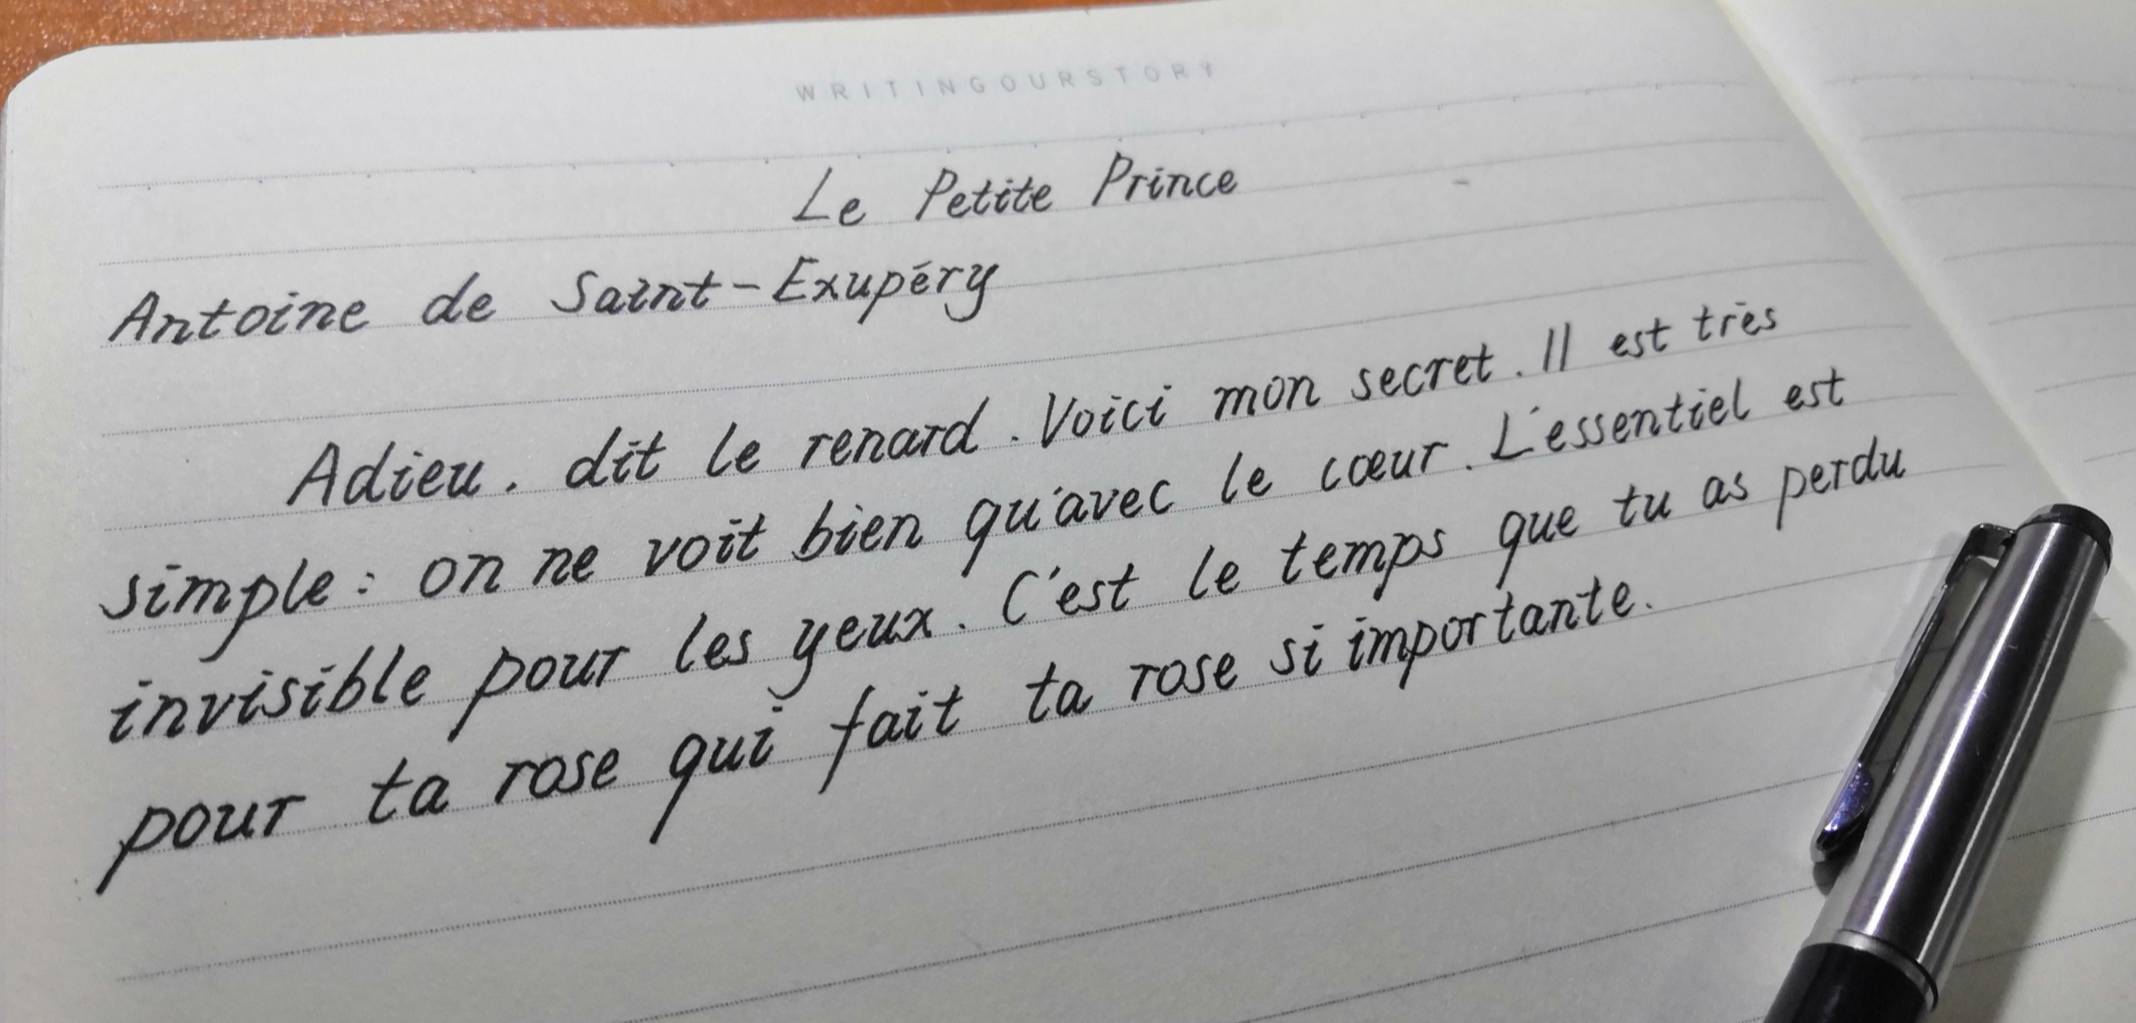 WRITINGOURSTORY
Le Petite Prince
Antoine de Saint-Exupéry
Adieu. dit le renard. Voici mon secret. Il est très
simple: on ne voit bien qu'avec le cœur. L'essentiel est
invisible pour les yeux. C'est le temps que tu as perdu
pour ta rose qui fait ta rose si importante.